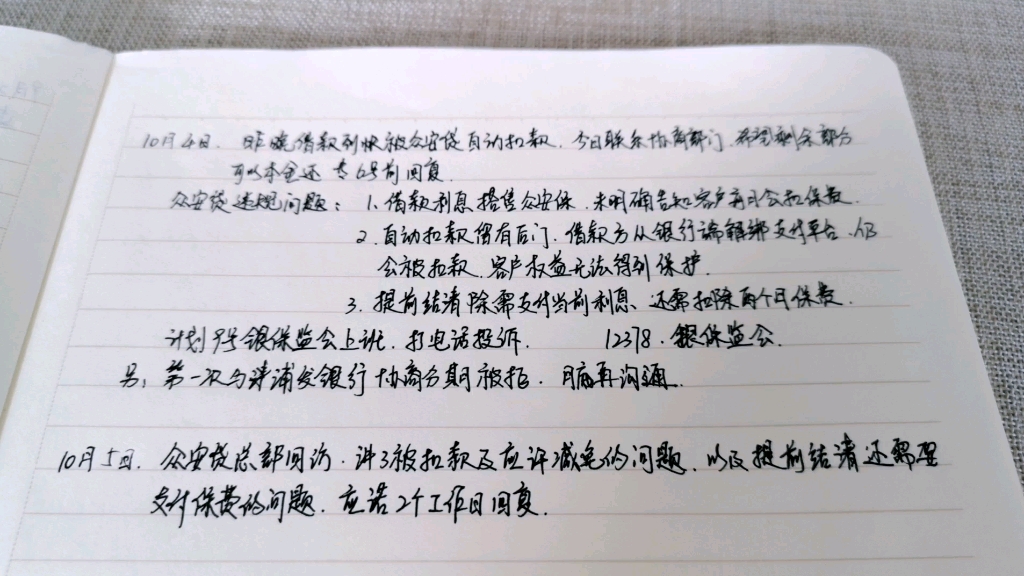 10月4日. 昨晚借款到快被众安贷自动扣款. 今日联系协商部门. 希望剩余部分
可以本金还 专6号前回复.
众安贷违规问题: 1. 借款利息搭售众安保. 未明确告知客户每月会扣保费.
2. 自动扣款留有后门. 借款方从银行端解绑支付平台. 仍
会被扣款. 客户权益无法得到保护.
3. 提前结清除需支付当前利息、还需扣除两个月保费.
计划9号银保监会上班. 打电话投诉. 12378. 银保监会.
另: 第一次与浦发银行协商分期被拒. 再沟通.
10月5日. 众安贷总部回访. 讲了被扣款及应许减免的问题. 以及提前结清还需要
支付保费的问题. 应诺2个工作日回复.